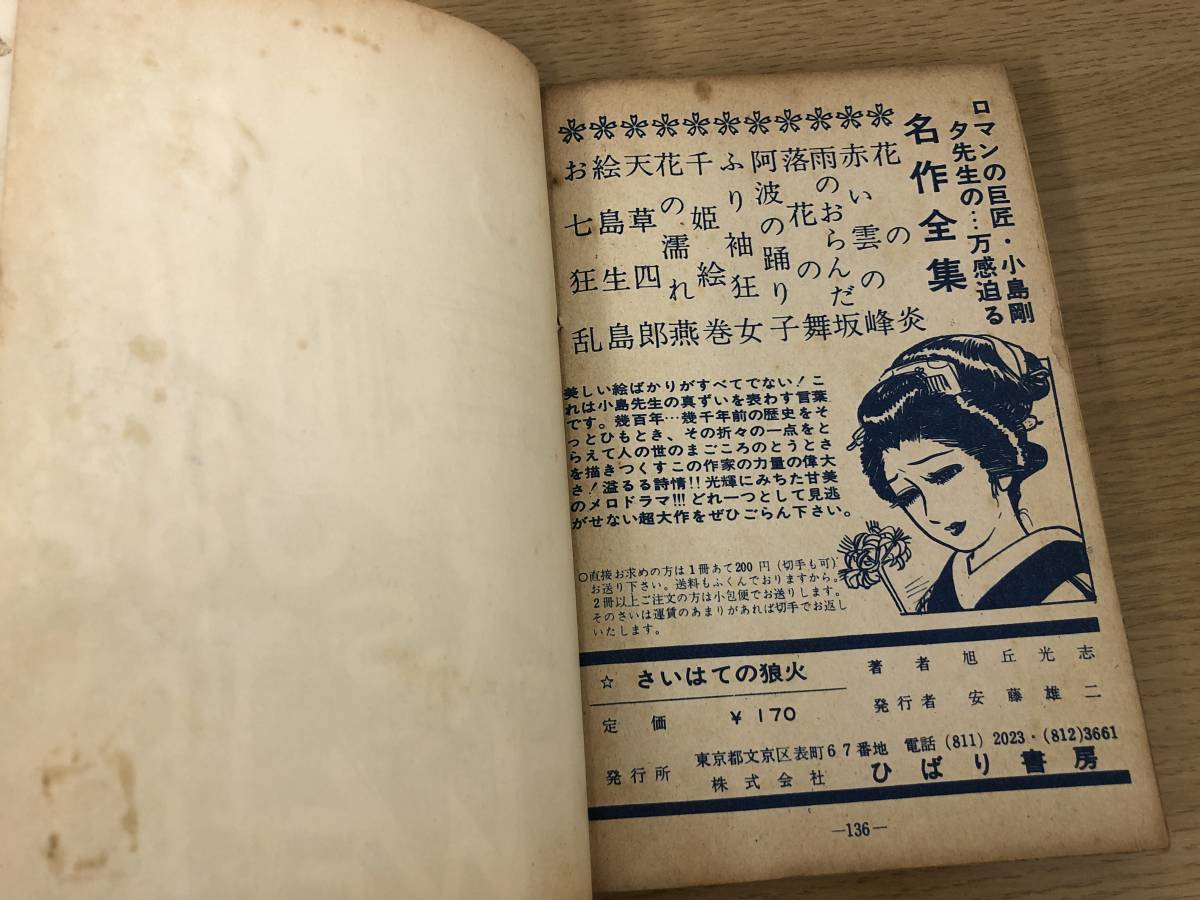 ロマンの巨匠・小島剛
夕先生の…万感迫る
名作全集
花の炎
赤い雲の峰
雨のおらんだ坂
落花の舞
阿波の踊り子
ふり袖狂女
千姫絵巻
花の濡れ燕
天草四郎
絵島生島
お七狂乱
美しい絵ばかりがすべてでない！こ
れは小島先生の真ずいを表わす言葉
です。幾百年…幾千年前の歴史をそ
っとひもとき、その折々の一点をと
らえて人の世のまごころのとうとさ
を描きつくすこの作家の力量の偉大
さ！溢るる詩情!!光輝にみちた甘美
のメロドラマ!!!どれ一つとして見逃
がせない超大作をぜひごらん下さい。
○直接お求めの方は1冊あて200円（切手も可）
お送り下さい。送料もふくんでおりますから。
2冊以上ご注文の方は小包便でお送りします。
そのさいは運賃のあまりがあれば切手でお返し
いたします。
☆ さいはての狼火
著者 旭丘光志
定価 ￥170
発行者 安藤雄二
発行所 東京都文京区表町67番地 電話(811)2023・(812)3661
株式会社 ひばり書房
—136—